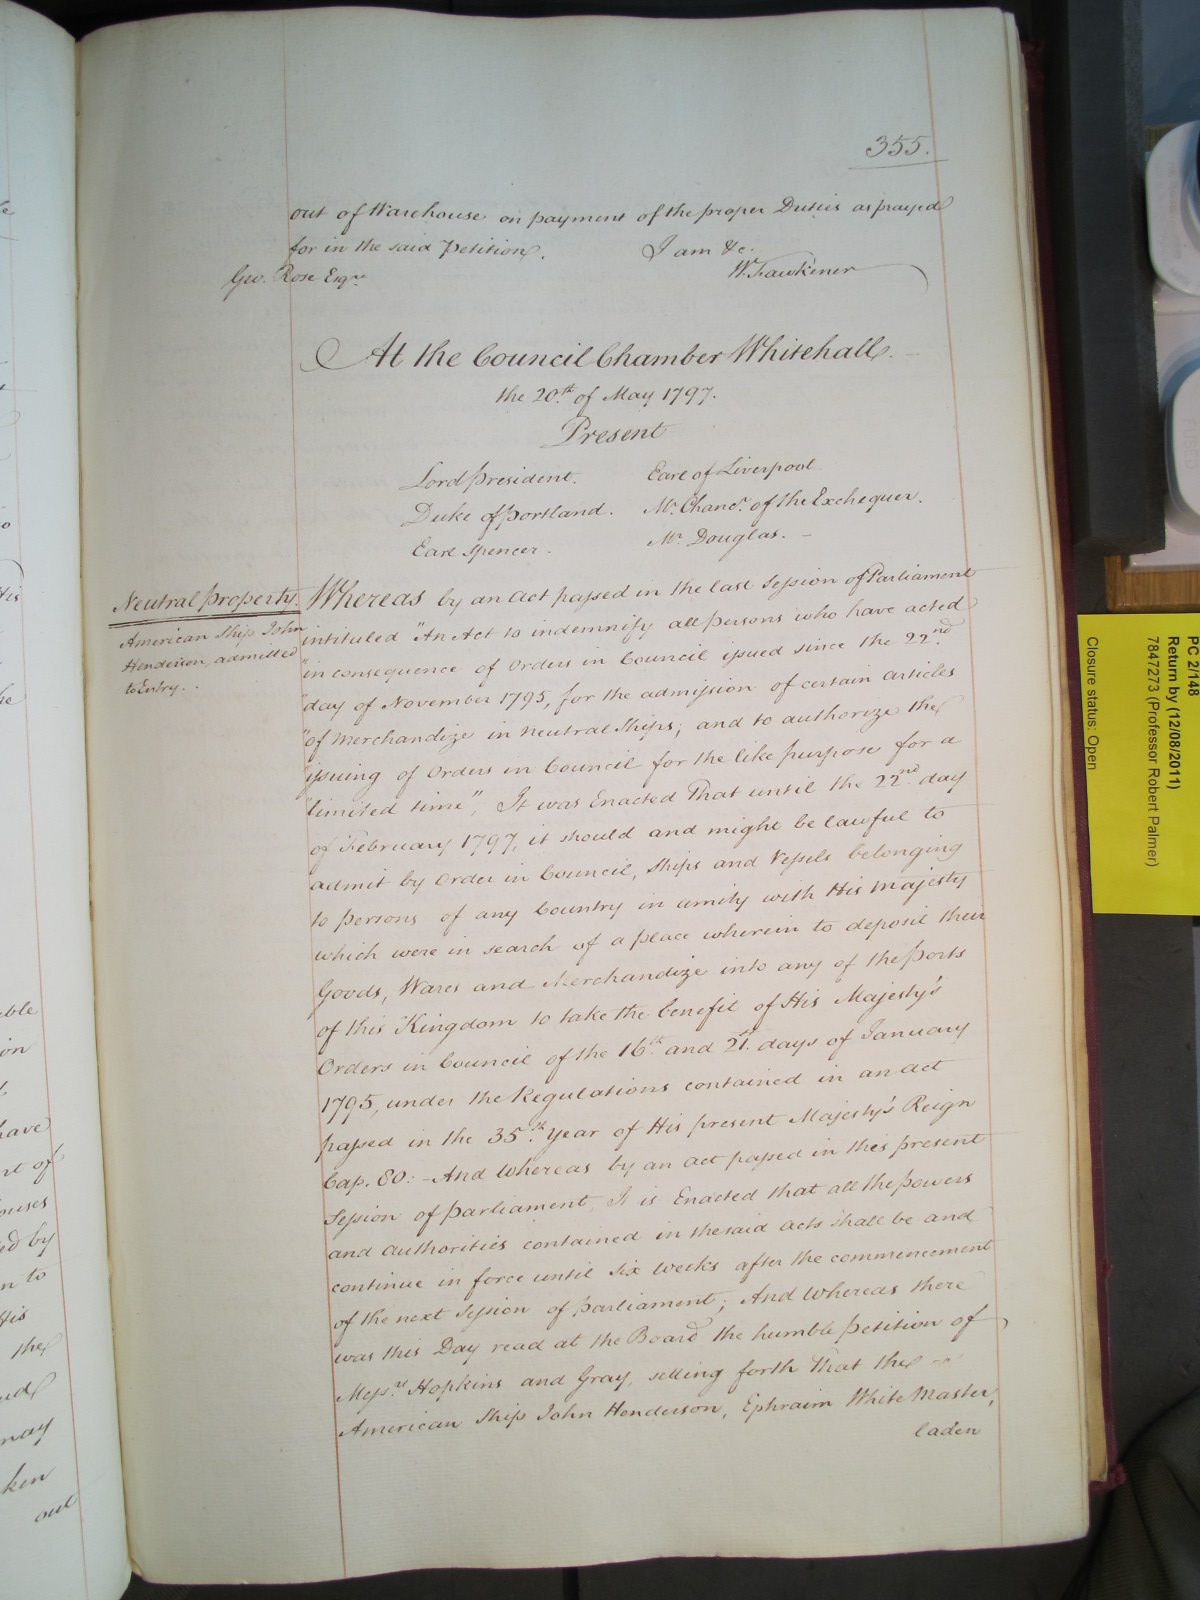 355.
out of Warehouse on payment of the proper Duties as prayed
for in the said Petition. I am &c.
Geo. Rose Esqre W. Fawkener
At the Council Chamber Whitehall.
the 20th of May 1797.
Present
Lord President. Earl of Liverpool
Duke of Portland. Mr. Chancr. of the Exchequer.
Earl Spencer. Mr. Douglas.
Neutral Property.
American Ship John
Henderson, admitted
to Entry.
Whereas by an Act passed in the last Session of Parliament
intituled "An Act to indemnify all persons who have acted
"in consequence of Orders in Council issued since the 22nd
"day of November 1795, for the admission of certain articles
"of Merchandize in Neutral Ships; and to authorize the
"issuing of Orders in Council for the like purpose for a
"limited time", It was Enacted That until the 22nd day
of February 1797, it should and might be lawful to
admit by Order in Council, Ships and Vessels belonging
to persons of any Country in amity with His Majesty
which were in search of a place wherein to deposit their
Goods, Wares and Merchandize into any of the Ports
of this Kingdom to take the benefit of His Majesty's
Orders in Council of the 16th and 21st days of January
1795, under the Regulations contained in an Act
passed in the 35th Year of His present Majesty's Reign
Cap. 80: - And Whereas by an Act passed in this present
Session of Parliament, It is Enacted that all the powers
and authorities contained in the said Acts shall be and
continue in force until six weeks after the commencement
of the next Session of Parliament; And Whereas there
was this Day read at the Board the humble Petition of
Messrs Hopkins and Gray, setting forth That the
American Ship John Henderson, Ephraim White Master,
laden
PC 2/148
Return by (12/08/2011)
7847273 (Professor Robert Palmer)
Closure status: Open
able
have
nt of
ouses
ed by
n to
His
the
may
ken
out